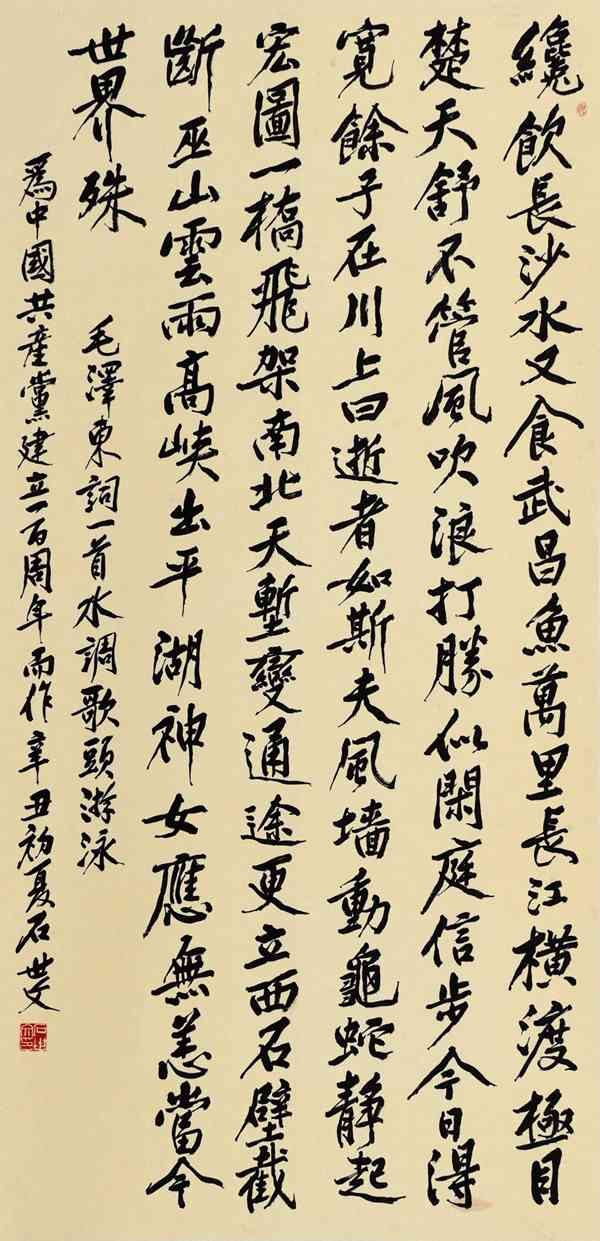 纔飲長沙水又食武昌魚萬里長江橫渡極目
楚天舒不管風吹浪打勝似閑庭信步今日得
寬餘子在川上曰逝者如斯夫風墙動龜蛇静起
宏圖一橋飛架南北天塹變通途更立西石壁截
斷巫山雲雨高峽出平湖神女應無恙當今
世界殊
毛澤東詞一首水調歌頭游泳
爲中國共產黨建立一百周年而作辛丑初夏石世文